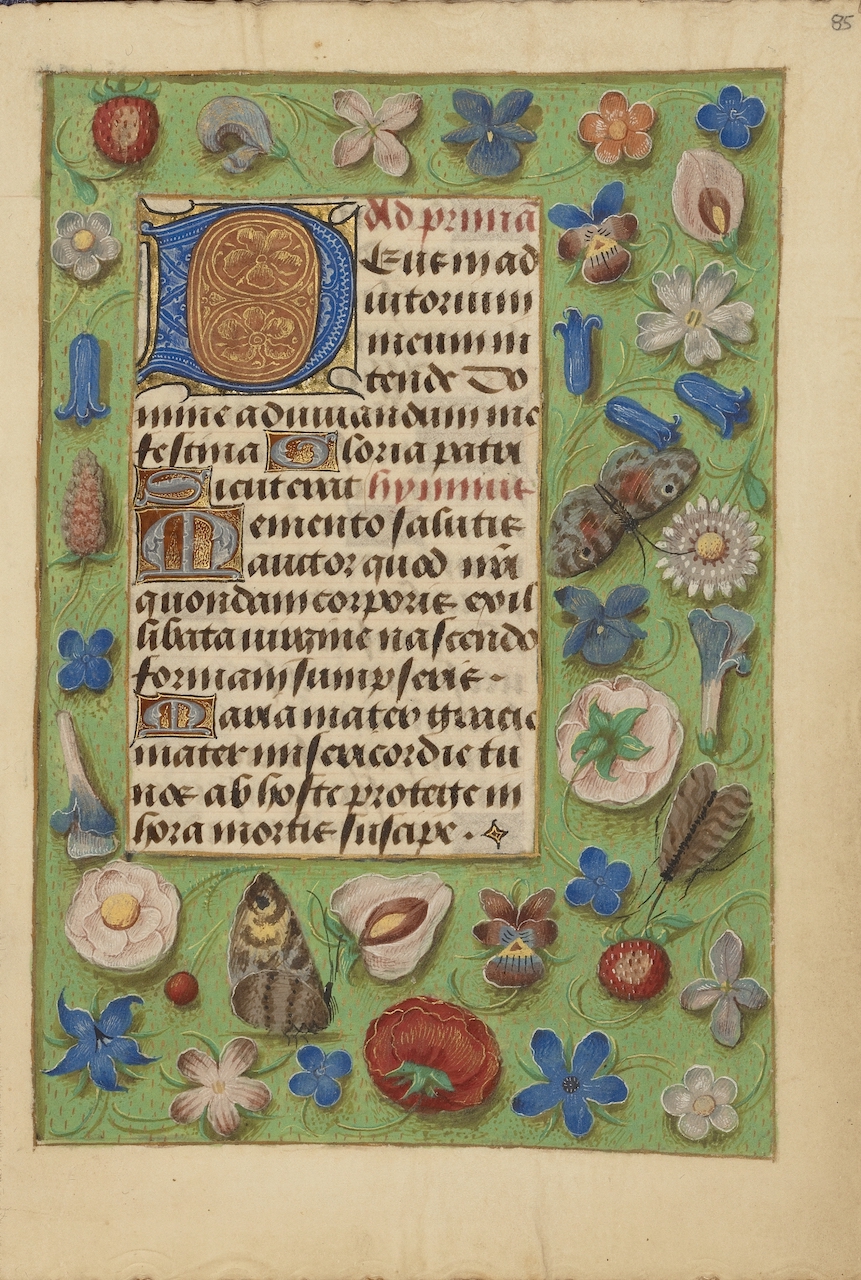 85
Ad primā
Deus in ad
iutorium
meum in
tende Do
mine ad iuuandum me
festina Gloria patri
Sicut erat hymnus
Memento salutis
auctor quod nr̄i
quondam corporis ex il
libata uirgine nascendo
formam sumpseris
Maria mater gracie
mater misericordie tu
nos ab hoste protege in
hora mortis suscipe .